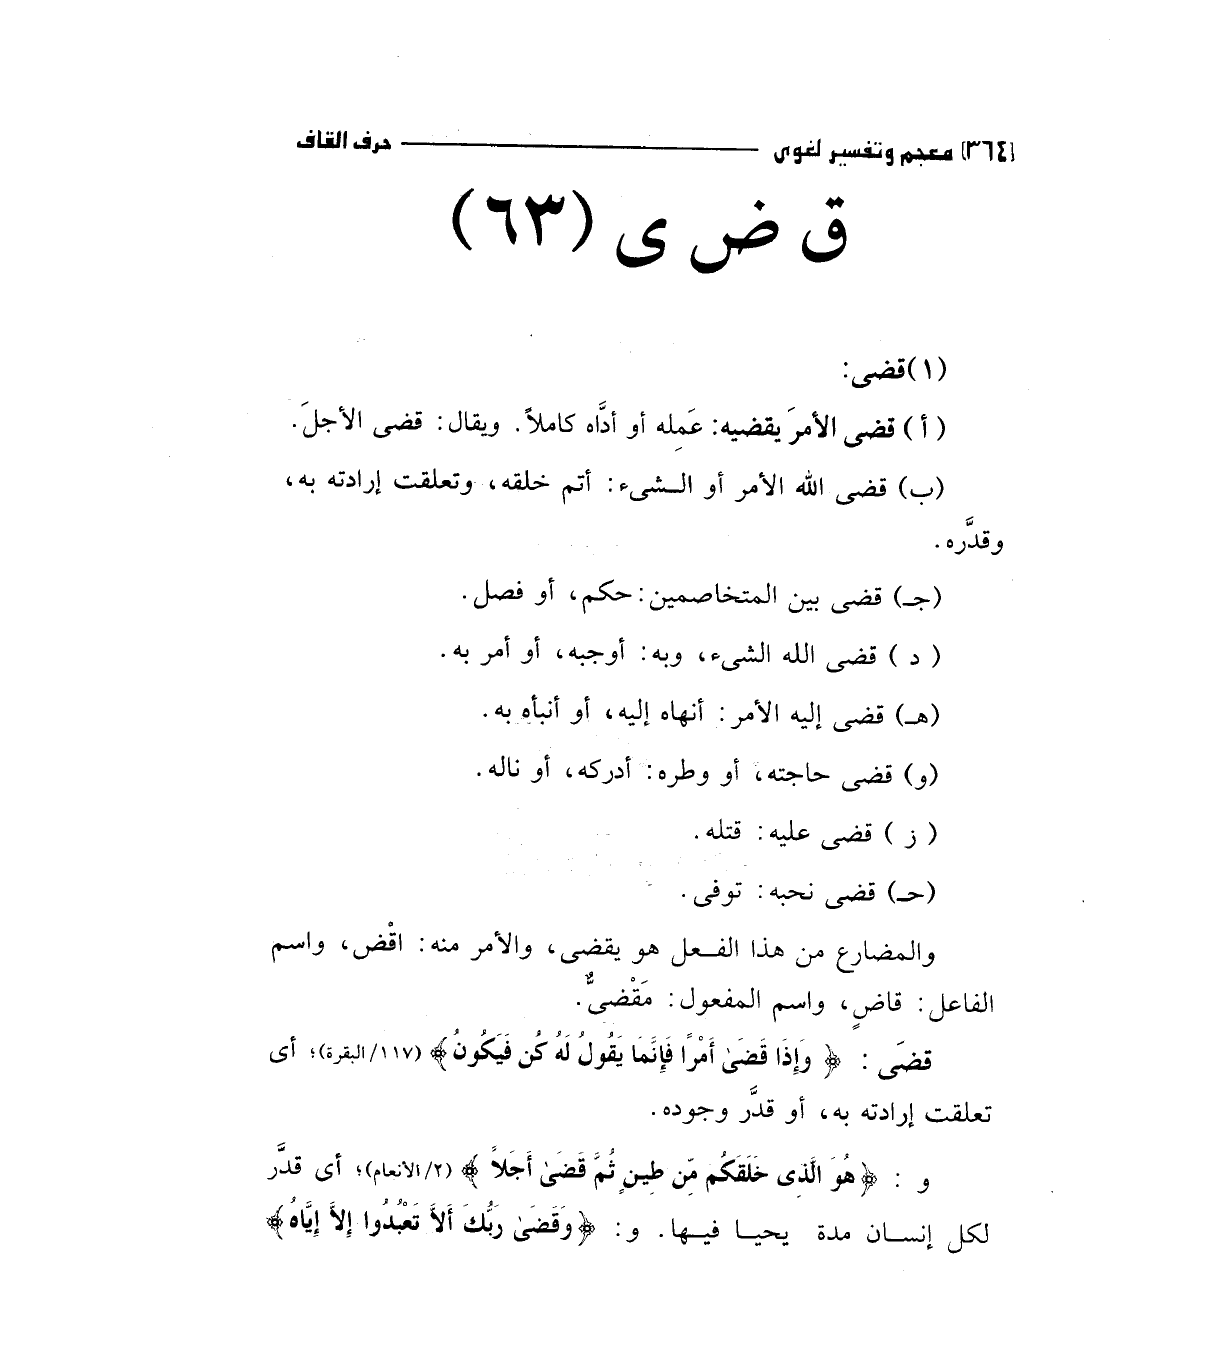 (٣٦٤) معجم وتفسير لغوى ــــــ حرف القاف
ق ض ى (٦٣)
(١) قضى:
(أ) قضى الأمرَ يقضيه: عَمِله أو أدَّاه كاملاً. ويقال: قضى الأجلَ.
(ب) قضى الله الأمر أو الشىء: أتم خلقه، وتعلقت إرادته به،
وقدَّره.
(جـ) قضى بين المتخاصمين: حكم، أو فصل.
(د) قضى الله الشىء، وبه: أوجبه، أو أمر به.
(هـ) قضى إليه الأمر: أنهاه إليه، أو أنبأه به.
(و) قضى حاجته، أو وطره: أدركه، أو ناله.
(ز) قضى عليه: قتله.
(حـ) قضى نحبه: توفى.
والمضارع من هذا الفعل هو يقضى، والأمر منه: اقْض، واسم
الفاعل: قاضٍ، واسم المفعول: مَقْضىٌّ.
قضَى: ﴿وَإِذَا قَضَىٰ أَمْرًا فَإِنَّمَا يَقُولُ لَهُ كُن فَيَكُونُ﴾ (١١٧/البقرة)؛ أى
تعلقت إرادته به، أو قدَّر وجوده.
و: ﴿هُوَ الَّذِى خَلَقَكُم مِّن طِينٍ ثُمَّ قَضَىٰ أَجَلاً﴾ (٢/الأنعام)؛ أى قدَّر
لكل إنسان مدة يحيا فيها. و: ﴿وَقَضَىٰ رَبُّكَ أَلاَّ تَعْبُدُوا إِلاَّ إِيَّاهُ﴾